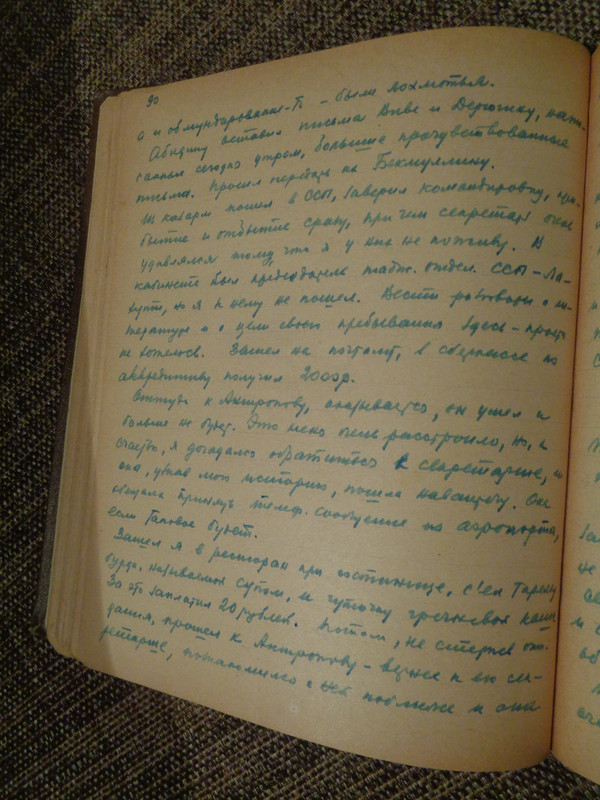 90
а и обмундирование-то - были лохмотья.
Абызину оставил письма Виве и Дерюжку, напи-
санные сегодня утром, большие прочувствованные
письма. Просил передать их Бекмуллину.
Из казарм пошел в ССП, заверил командировку, при-
бытие и отбытие сразу, при чем секретарь очень
удивлялся тому, что я у них не поживу. В
кабинете был председатель тадж. отдел. ССП - Ла-
хути, но я к нему не пошел. Вести разговоры о ли-
тературе и о цели своего пребывания здесь - просто
не хотелось. Зашел на почтамт, в сберкассе по
аккредитиву получил 2000р.
Оттуда к Антропову, оказывается, он ушел и
больше не будет. Это меня очень расстроило, но, к
счастью, я догадался обратиться к секретарше, и
она, узнав мою историю, пошла навстречу. Она
обещала принять телеф. сообщение из аэропорта,
если таковое будет.
Зашел я в ресторан при гостинице, съел тарелку
бурды, называемой супом, и чуточку гречневой каши
За это заплатил 20 рублей. Потом, не стерпев ожи-
дания, прошел к Антропову - вернее к его се-
кретарше, познакомился с ней поближе и она